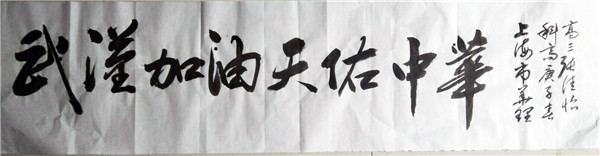 武漢加油天佑中華
上海市华理
科高庚子春
高三张佳怡